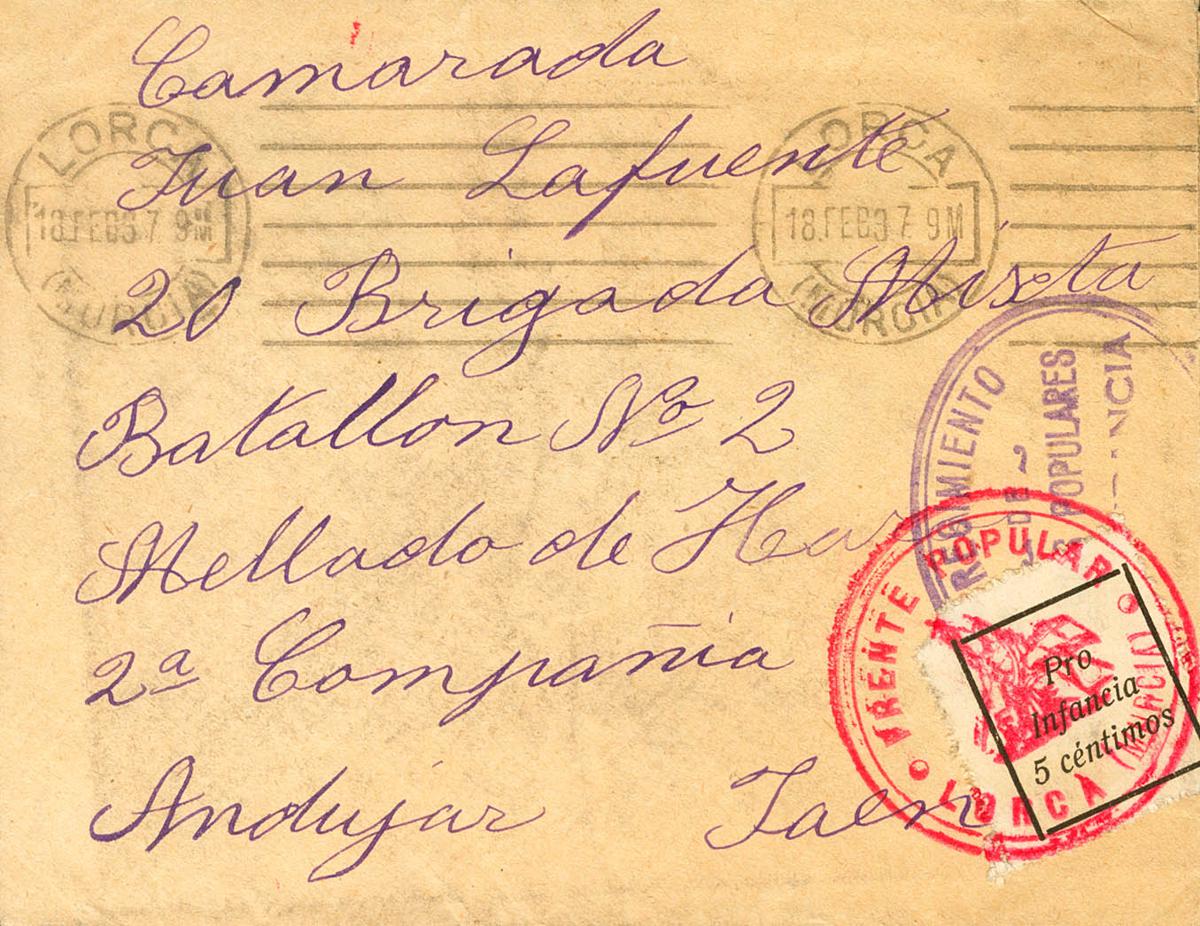 Camarada
Juan Lafuente
20 Brigada Mixta
Batallon Nº 2
Mellado de
2ª Compañia
Andujar Jaen
LORCA
18.FEB37 9M
(MURCIA)
LORCA
18.FEB37 9M
(MURCIA)
DE
POPULARES
FRENTE POPULAR
LORCA (MURCIA)
Pro
Infancia
5 céntimos